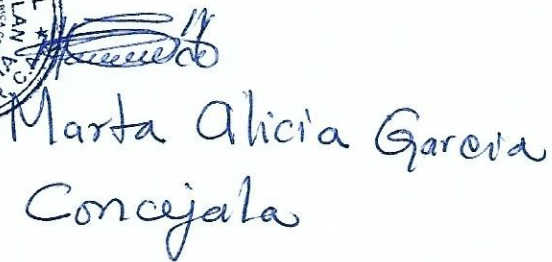 Marta Alicia Garcia
Concejala